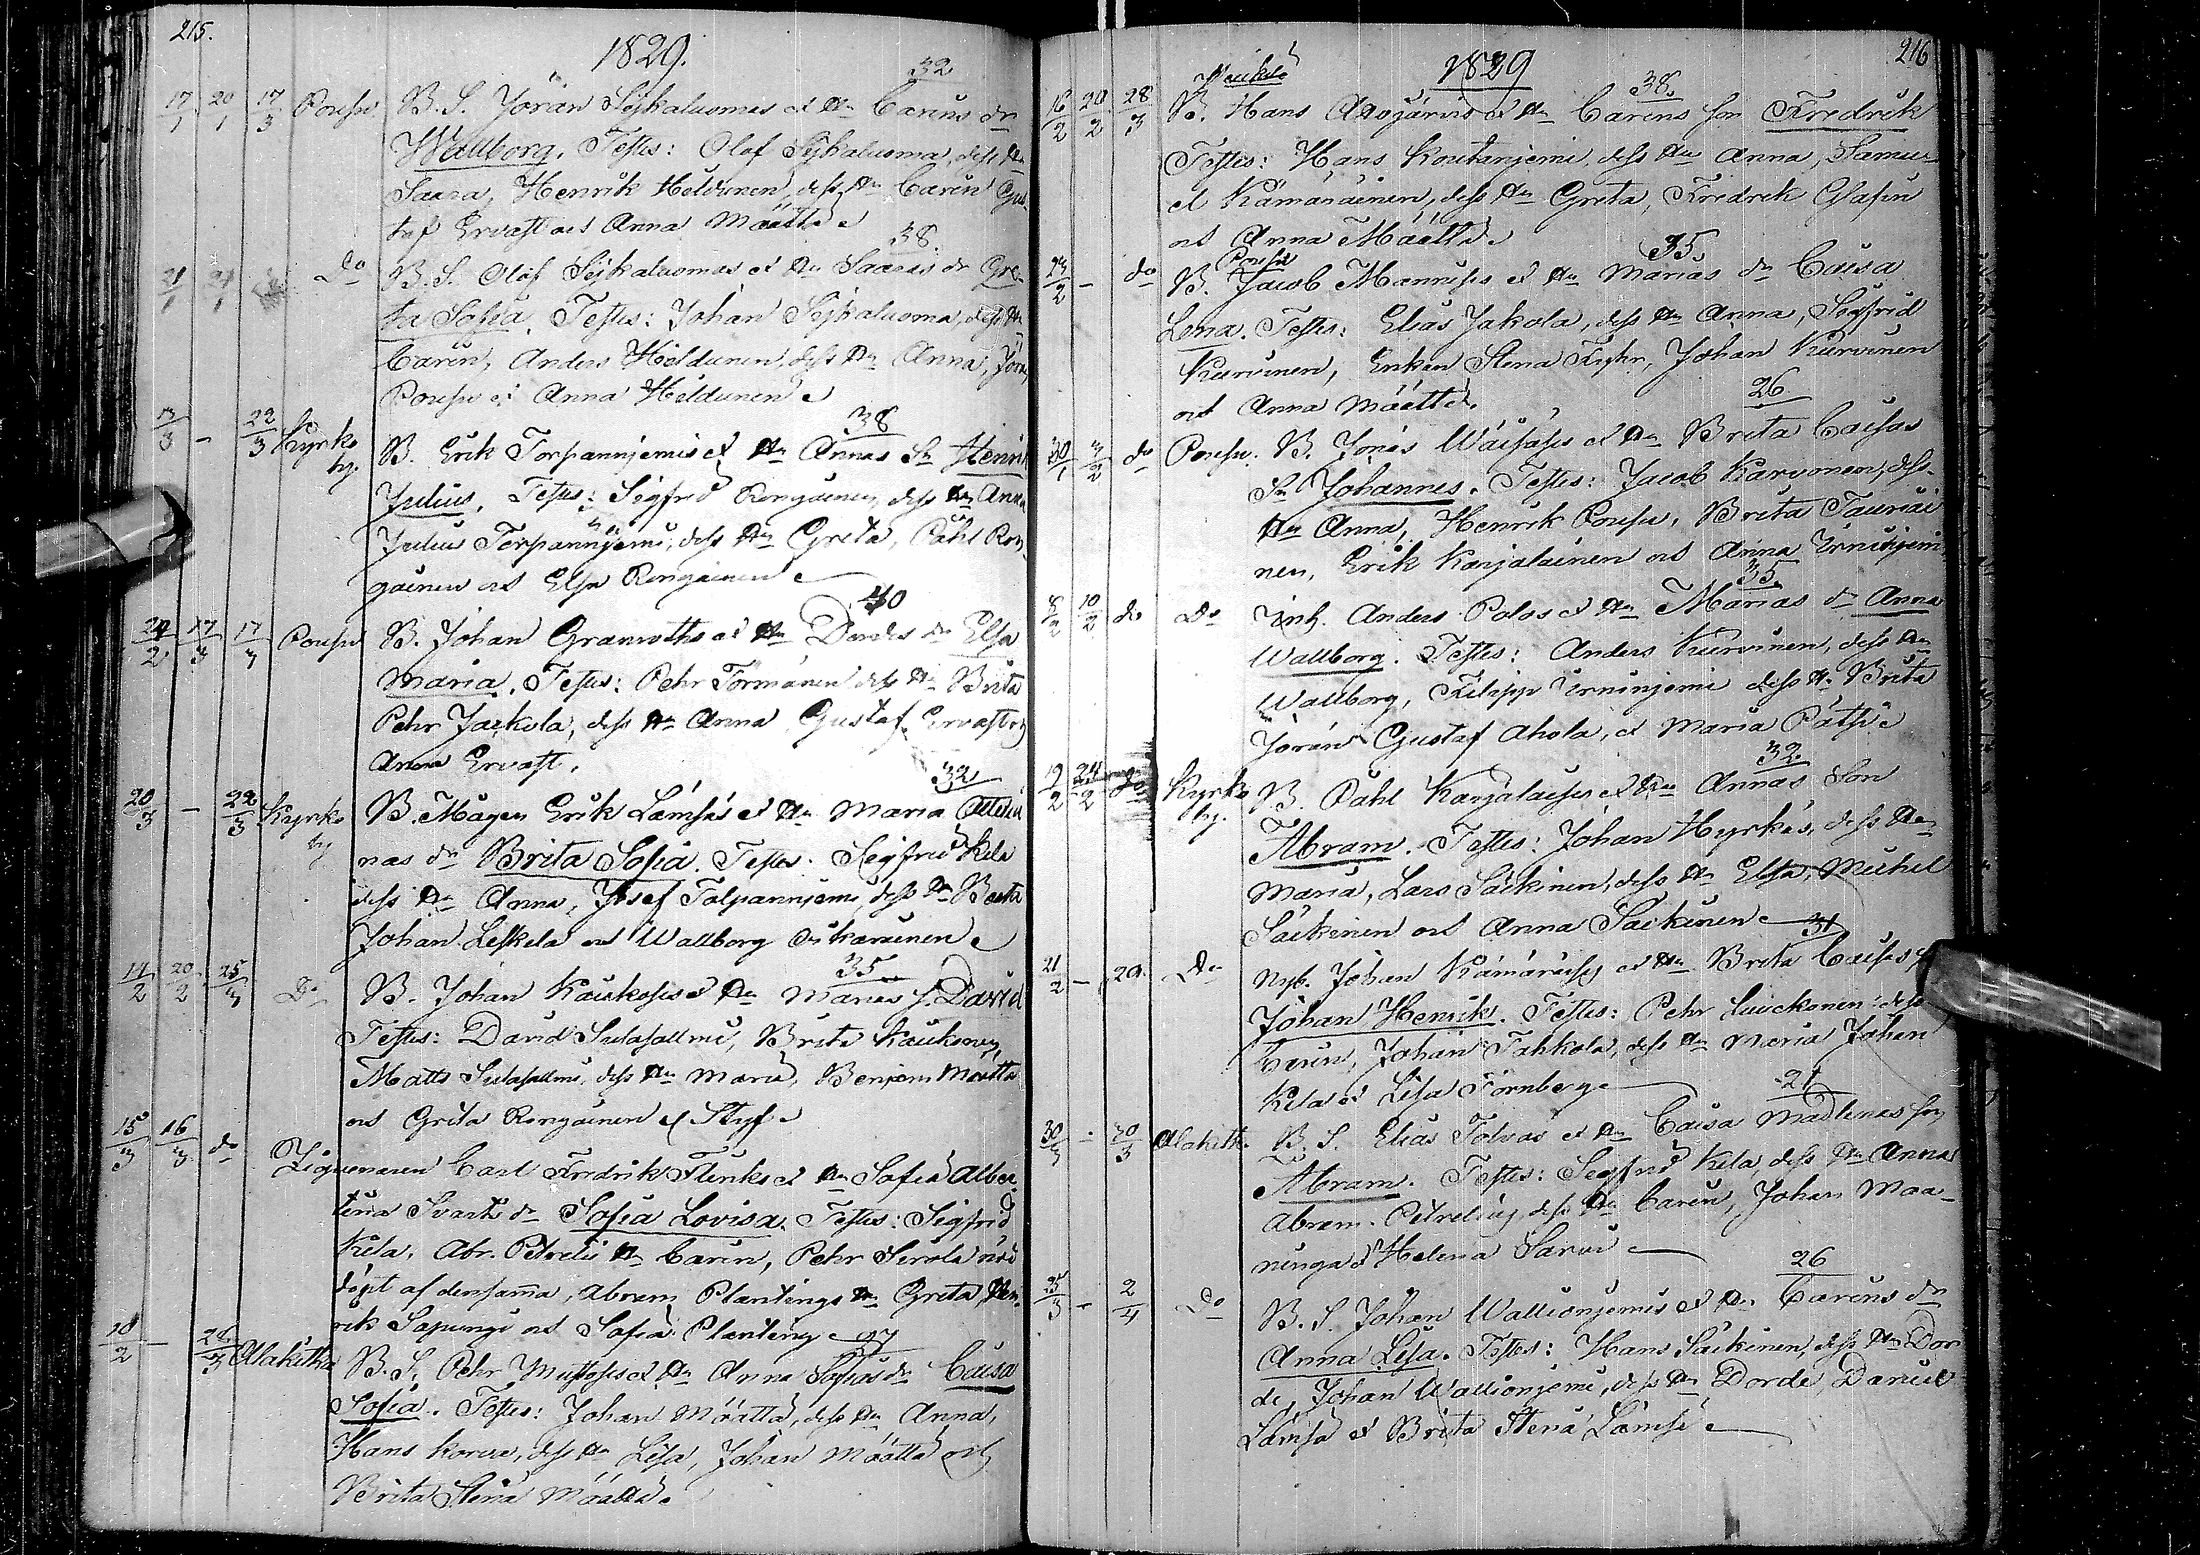 215.
1829.
32
17/1 20/1 17/3 Poussu B. S. Jöran Sejkaluomas et Hu Carins dr
Wallborg. Testes: Olof Sejkaluoma, dess Hu
Saara, Henrik Heldunen, dess Hu Carin Gus-
taf Ervast och Anna Määttä
38.
21/1 24/1 Do B. S. Olof Sejkaluomas et Hu Saaras dr Gre-
ta Sofia. Testes: Johan Sejkaluoma, dess Hu
Carin, Anders Heldunen, dess Hu Anna, Jöran
Poussu et Anna Heldunen
38
13/3 - 22/3 Kyrko
by. B. Erik Torpannjemis et Hu Annas Sn Henrik
Julius. Testes: Sigfrid Rengäinen, dess Hu Anna
Julius Torpannjemi, dess Hu Greta, Påhl Ron-
gainen och Elsa Rongainen
40
24/2 17/3 17/3 Poussu B. Johan Granroths et Hu Dordes dr Elsa
Maria. Testes: Pehr Törmänen dess Hu Brita
Pehr Jaakola, dess Hu Anna Gustaf Ervast och
Anna Ervast.
32
20/3 - 22/3 Kyrko
by B. Mågen Erik Lämsäs et Hu Maria
nas dr Brita Sofia. Testes: Sigfrid Kela
dess Hu Anna, Josef Talpannjemi, dess Hu Beata
Johan Leskela och Wallborg
35
14/2 20/2 25/3 Do B. Johan Kaukosis et Hu Marias s. David
Testes: David Sulasallmi, Brita Kaukonen,
Matts Sulasallmi, dess Hu Maria, Benjam Määttä
och Greta Rongainen
15/3 16/3 do Ziguenaren Carl Fredrik Flinks et Hu Sofia Alber-
tina Svarts dr Sofia Lovisa. Testes: Sigfrid
Kela, Abr. Petrelii Hu Carin, Pehr Serola
döpt af densamma, Abram Plantings Hu Greta, Hen-
rik Sapungi och Sofia Planting
27
18/2 - 26/3 Alakitka B. S. Pehr Mustosis et Hu Anna Sofias dr Caisa
Sofia. Testes: Johan Määttä, dess Hu Anna,
Hans Korva, dess Hu Lisa, Johan Määttä och
Brita Stena Määttä
216
1829
38.
16/2 20/2 28/3 B. Hans Aosjärvis et Hu Carins son Fredrik
Testes: Hans Koutanjemi, dess Hu Anna, Samu-
el Kämäräinen, dess Hu Greta, Fredrik Glasin
och Anna Määttä
35
Poussu
23/2 - do B. Jacob Mannises et Hu Marias dr Caisa
Lena. Testes: Elias Jakola, dess Hu Anna, Sigfrid
Kurvinen, Enkan Stena Fyhr, Johan Kurvinen
och Anna Määttä.
26
30/1 3/2 do Poussu. B. Jonas Wäisäses et Hu Brita Caisas
Sn Johannes. Testes: Jacob Karvonen, dess
Hu Anna, Henrik Poussu, Brita Tauriai
nen, Erik Karjalainen och Anna Irninjemi
35.
8/2 10/2 do Do Inh. Anders Polos et Hu Marias dr Anna
Wallborg. Testes: Anders Kurvinen, dess Hu
Wallborg, Filipp Irninjemi dess Hu Brita
Jöran Gustaf Ahola, et Maria Pätsi
32
19/2 24/2 do Kyrko
by. B. Påhl Karjalaises et Hu Annas Son
Abram. Testes: Johan Hyrkäs, dess Hu
Maria, Lars Säikinen, dess Hu Elsa, Mickel
Säikinen och Anna Säikinen
31
21/2 - 29. Do Nyb. Johan Kämäräises et Hu Brita Caisas s
Johan Henrik. Testes: Pehr Luickonen dess
Carin, Johan Tahkola, dess Hu Maria Johan
Kela et Lisa Törnberg
21
30/3 - 30/3 Alakitk. B. S. Elias Tolvas et Hu Caisa Madlenas son
Abram. Testes: Segfrid Kela, dess Hu Anna
Abram Petrelius, dess Hu Carin, Johan Maa-
ninga et Helena Sarvi
26
25/3 - 2/4 Do B. S. Johan Wallionjemis et Hu Carins dr
Anna Lisa. Testes: Hans Säikinen, dess Hu Dor
de, Johan Wallionjemi, dess Hu Dorde, Daniel
Lämsä et Brita Stena Lämsä